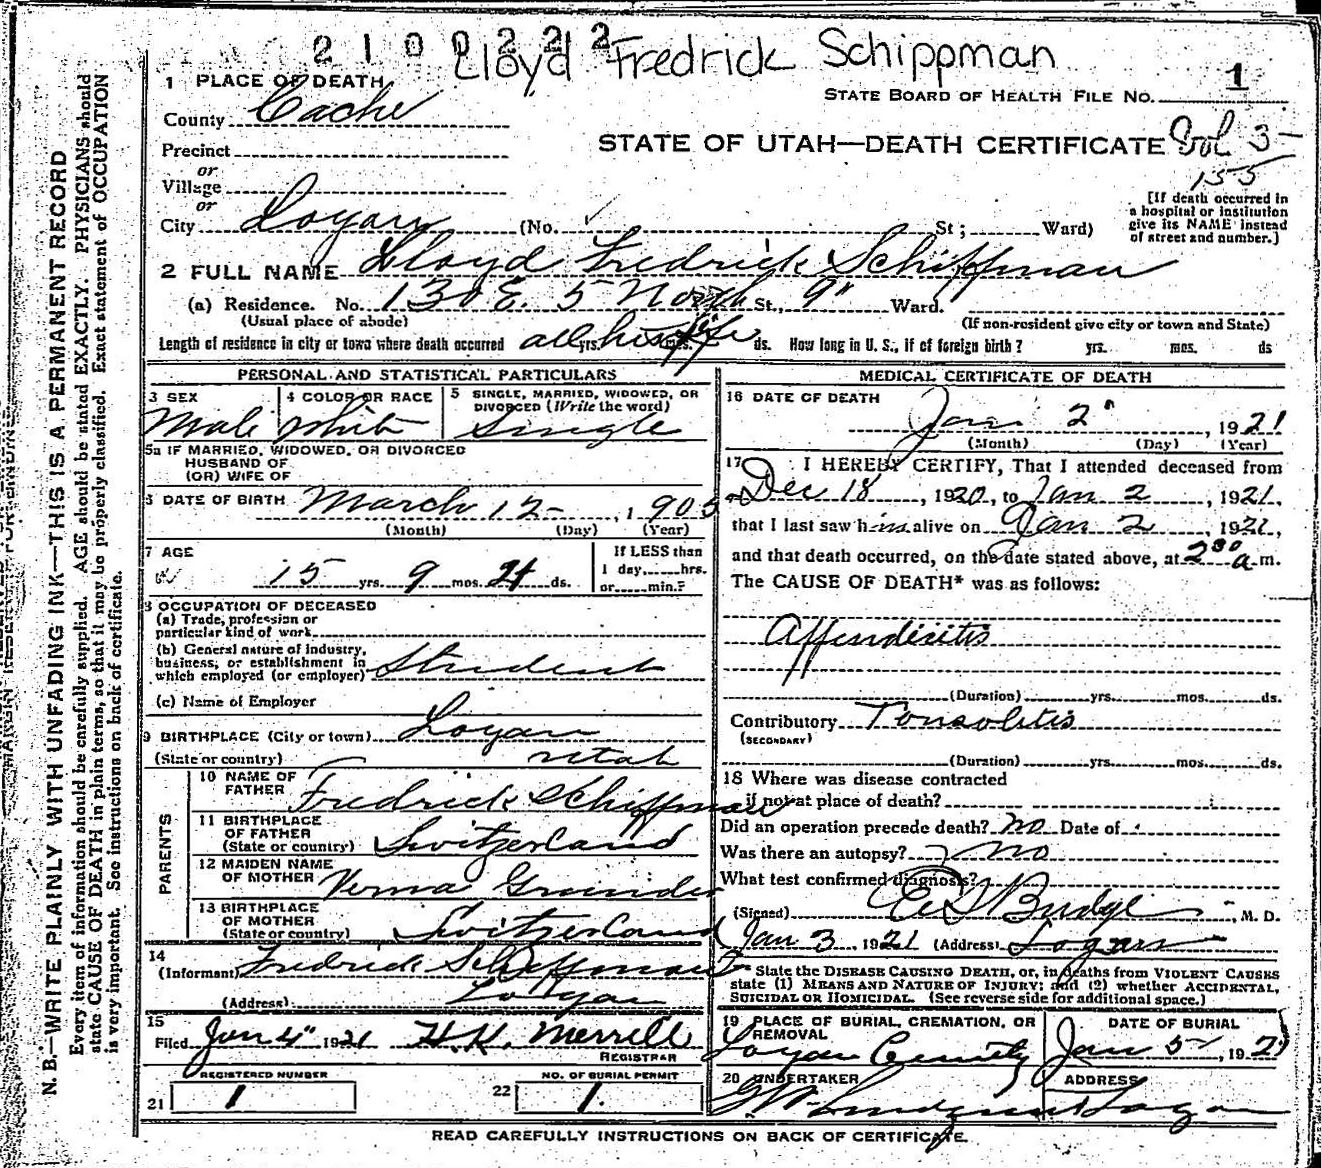 2 1 0 0 2 2 2 1 2
Lloyd Fredrick Schippman
1 PLACE OF DEATH
STATE BOARD OF HEALTH FILE NO. 1
County Cache
STATE OF UTAH—DEATH CERTIFICATE Vol 3-
155
Precinct
or
Village
or
City Logan (No. St; Ward)
[If death occurred in
a hospital or institution
give its NAME instead
of street and number.]
2 FULL NAME Lloyd Fredrick Schippman
(a) Residence. No. 130 E. 5 North St., 9" Ward.
(Usual place of abode)
(If non-resident give city or town and State)
Length of residence in city or town where death occurred all his life yrs. mos. ds. How long in U. S., if of foreign birth? yrs. mos. ds
PERSONAL AND STATISTICAL PARTICULARS
3 SEX
Male
4 COLOR OR RACE
White
5 SINGLE, MARRIED, WIDOWED, OR
DIVORCED (Write the word)
Single
5a IF MARRIED, WIDOWED, OR DIVORCED
HUSBAND OF
(OR) WIFE OF
6 DATE OF BIRTH March 12- , 1905
(Month) (Day) (Year)
7 AGE
15 yrs. 9 mos. 21 ds.
If LESS than
1 day,.....hrs.
or.....min.?
8 OCCUPATION OF DECEASED
(a) Trade, profession or
particular kind of work
(b) General nature of industry,
business, or establishment in
which employed (or employer) Student
(c) Name of Employer
9 BIRTHPLACE (City or town) Logan
(State or country) Utah
PARENTS
10 NAME OF
FATHER Fredrick Schippman
11 BIRTHPLACE
OF FATHER
(State or country) Switzerland
12 MAIDEN NAME
OF MOTHER Verna Grunder
13 BIRTHPLACE
OF MOTHER
(State or country) Switzerland
14
(Informant) Fredrick Schippman
(Address) Logan
15
Filed Jan 4" 1921 H.K. Merrill
REGISTRAR
REGISTERED NUMBER
21 1
NO. OF BURIAL PERMIT
22 1.
MEDICAL CERTIFICATE OF DEATH
16 DATE OF DEATH
Jan 2" , 1921
(Month) (Day) (Year)
17 I HEREBY CERTIFY, That I attended deceased from
Dec 18 , 1920, to Jan 2 , 1921,
that I last saw him alive on Jan 2 , 1921,
and that death occurred, on the date stated above, at 2 30 a m.
The CAUSE OF DEATH* was as follows:
Appendicitis
(Duration) yrs. mos. ds.
Contributory Tonsolitis
(SECONDARY)
(Duration) yrs. mos. ds.
18 Where was disease contracted
if not at place of death?
Did an operation precede death? No Date of
Was there an autopsy? No
What test confirmed diagnosis?
(Signed) E S Budge , M. D.
Jan 3 , 1921 (Address) Logan
* State the DISEASE CAUSING DEATH, or, in deaths from VIOLENT CAUSES
state (1) MEANS AND NATURE OF INJURY; and (2) whether ACCIDENTAL,
SUICIDAL OR HOMICIDAL. (See reverse side for additional space.)
19 PLACE OF BURIAL, CREMATION, OR
REMOVAL
Logan Cemetery
DATE OF BURIAL
Jan 5 , 1921
20 UNDERTAKER
ADDRESS
Logan
READ CAREFULLY INSTRUCTIONS ON BACK OF CERTIFICATE.
N. B.—WRITE PLAINLY WITH UNFADING INK—THIS IS A PERMANENT RECORD
Every item of information should be carefully supplied. AGE should be stated EXACTLY. PHYSICIANS should
state CAUSE OF DEATH in plain terms, so that it may be properly classified. Exact statement of OCCUPATION
is very important. See instructions on back of certificate.